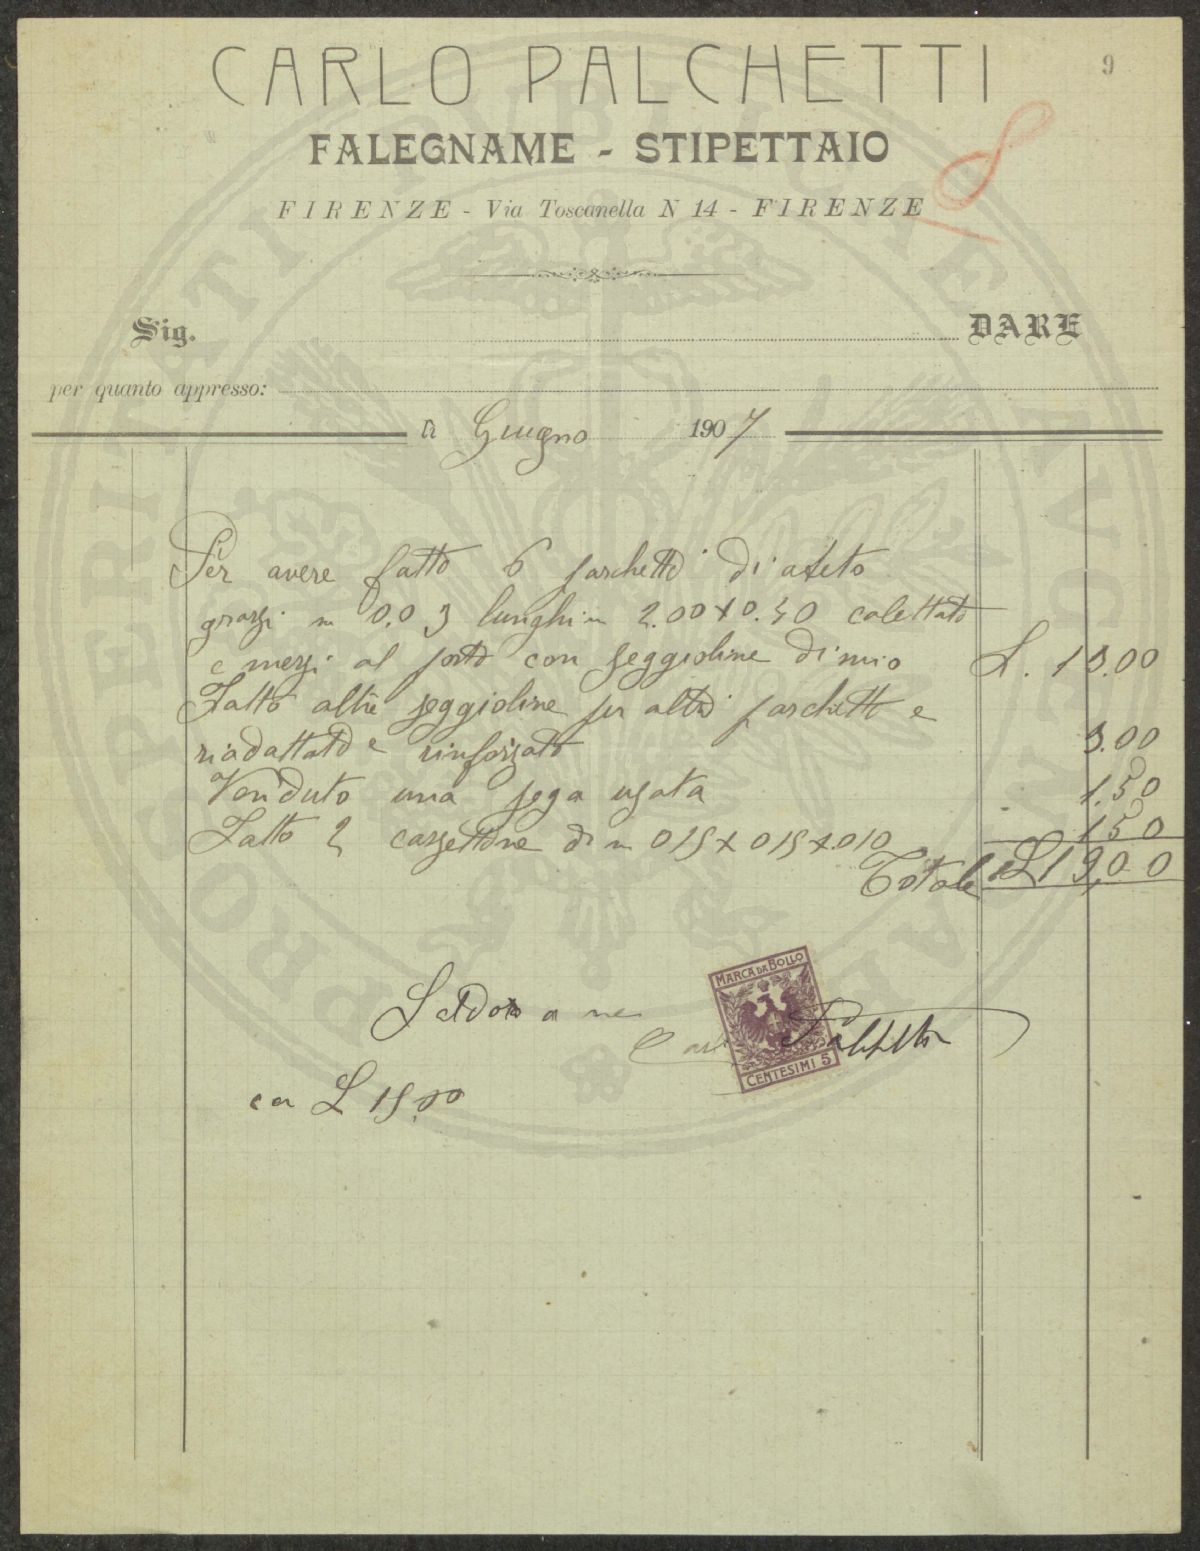 CARLO PALCHETTI
9
FALEGNAME - STIPETTAIO
8
FIRENZE - Via Toscanella N 14 - FIRENZE
Sig. DARE
per quanto appresso:
lì Giugno 1907
Per avere fatto 6 parchetti di abeto
grossi m 0.03 lunghi m 2.00 x 0.50 calettato
e messi al posto con seggioline di mio L. 13.00
Fatto altre seggioline per altri parchetti e
riadattato e rinforzato 3.00
Venduto una sega usata 1.50
Fatto 2 cassettine di m 015 x 015 x 010 1 50
Totale L 19,00
MARCA DA BOLLO
Saldato a me
Carlo Palchetti
CENTESIMI 5
ca L 15,00
PROSPERITATI PVBLICAE AVGENDAE